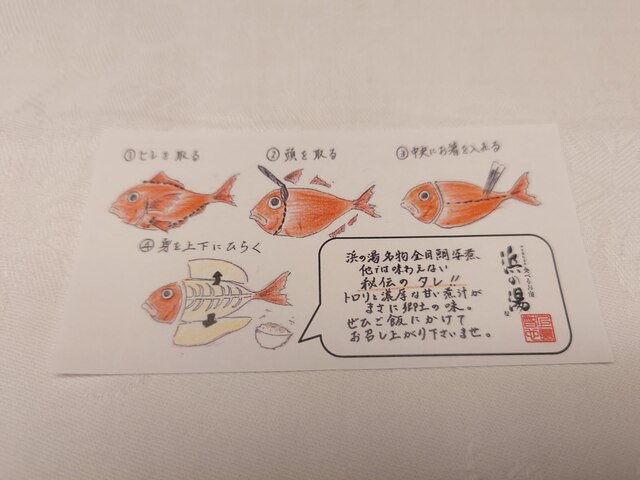 ①ヒレを取る
②頭を取る
③中央にお箸を入れる
④身を上下にひらく
浜の湯名物金目鯛姿煮、
他では味わえない
秘伝のタレ!!
トロリと濃厚な甘い煮汁が
まさに郷土の味。
ぜひご飯にかけて
お召し上がり下さいませ。
食べるお宿
浜の湯